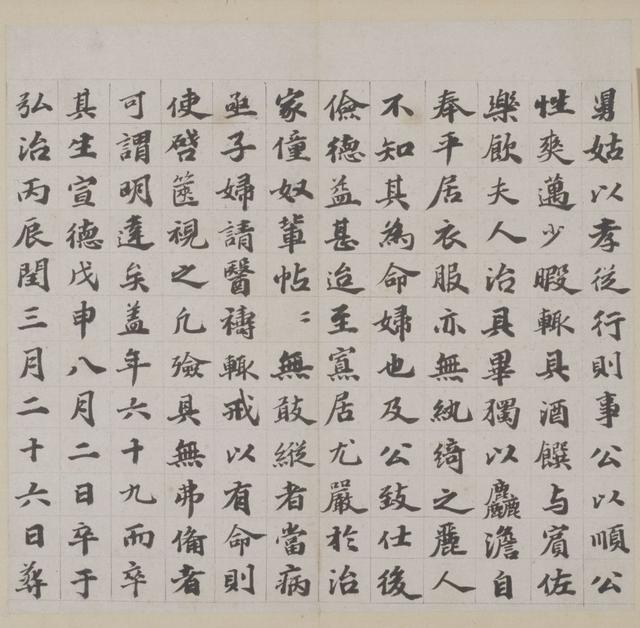 舅姑以孝從行則事公以順公
性爽邁少暇輒具酒饌与賓佐
樂飲夫人治具畢獨以麤澹自
奉平居衣服亦無紈綺之麗人
不知其為命婦也及公致仕後
儉德益甚迨至寡居尤嚴於治
家僮奴輩帖〻無敢縱者當病
亟子婦請醫禱輒戒以有命則
使啓篋視之凡殮具無弗備者
可謂明達矣蓋年六十九而卒
其生宣德戊申八月二日卒于
弘治丙辰閏三月二十六日葬